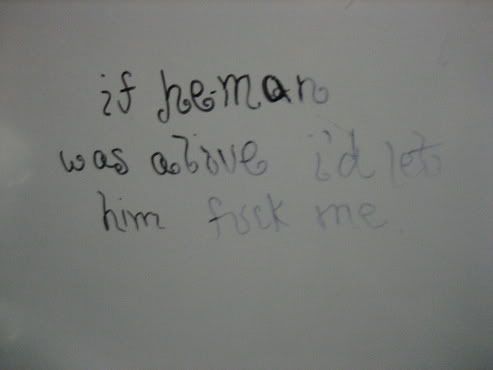 if he-man
was alive i'd let
him fuck me.